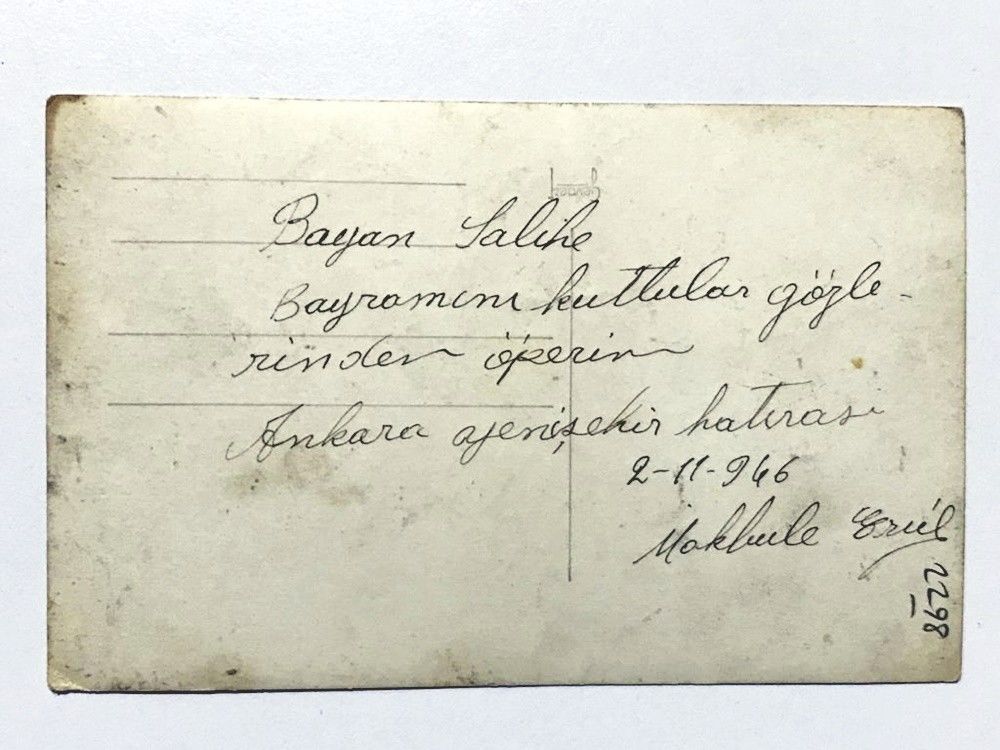 Bayan Salihe
Bayramını kutlular gözle-
rinden öperim
Ankara yenişehir hatırası
2-11-946
Makbule
8622